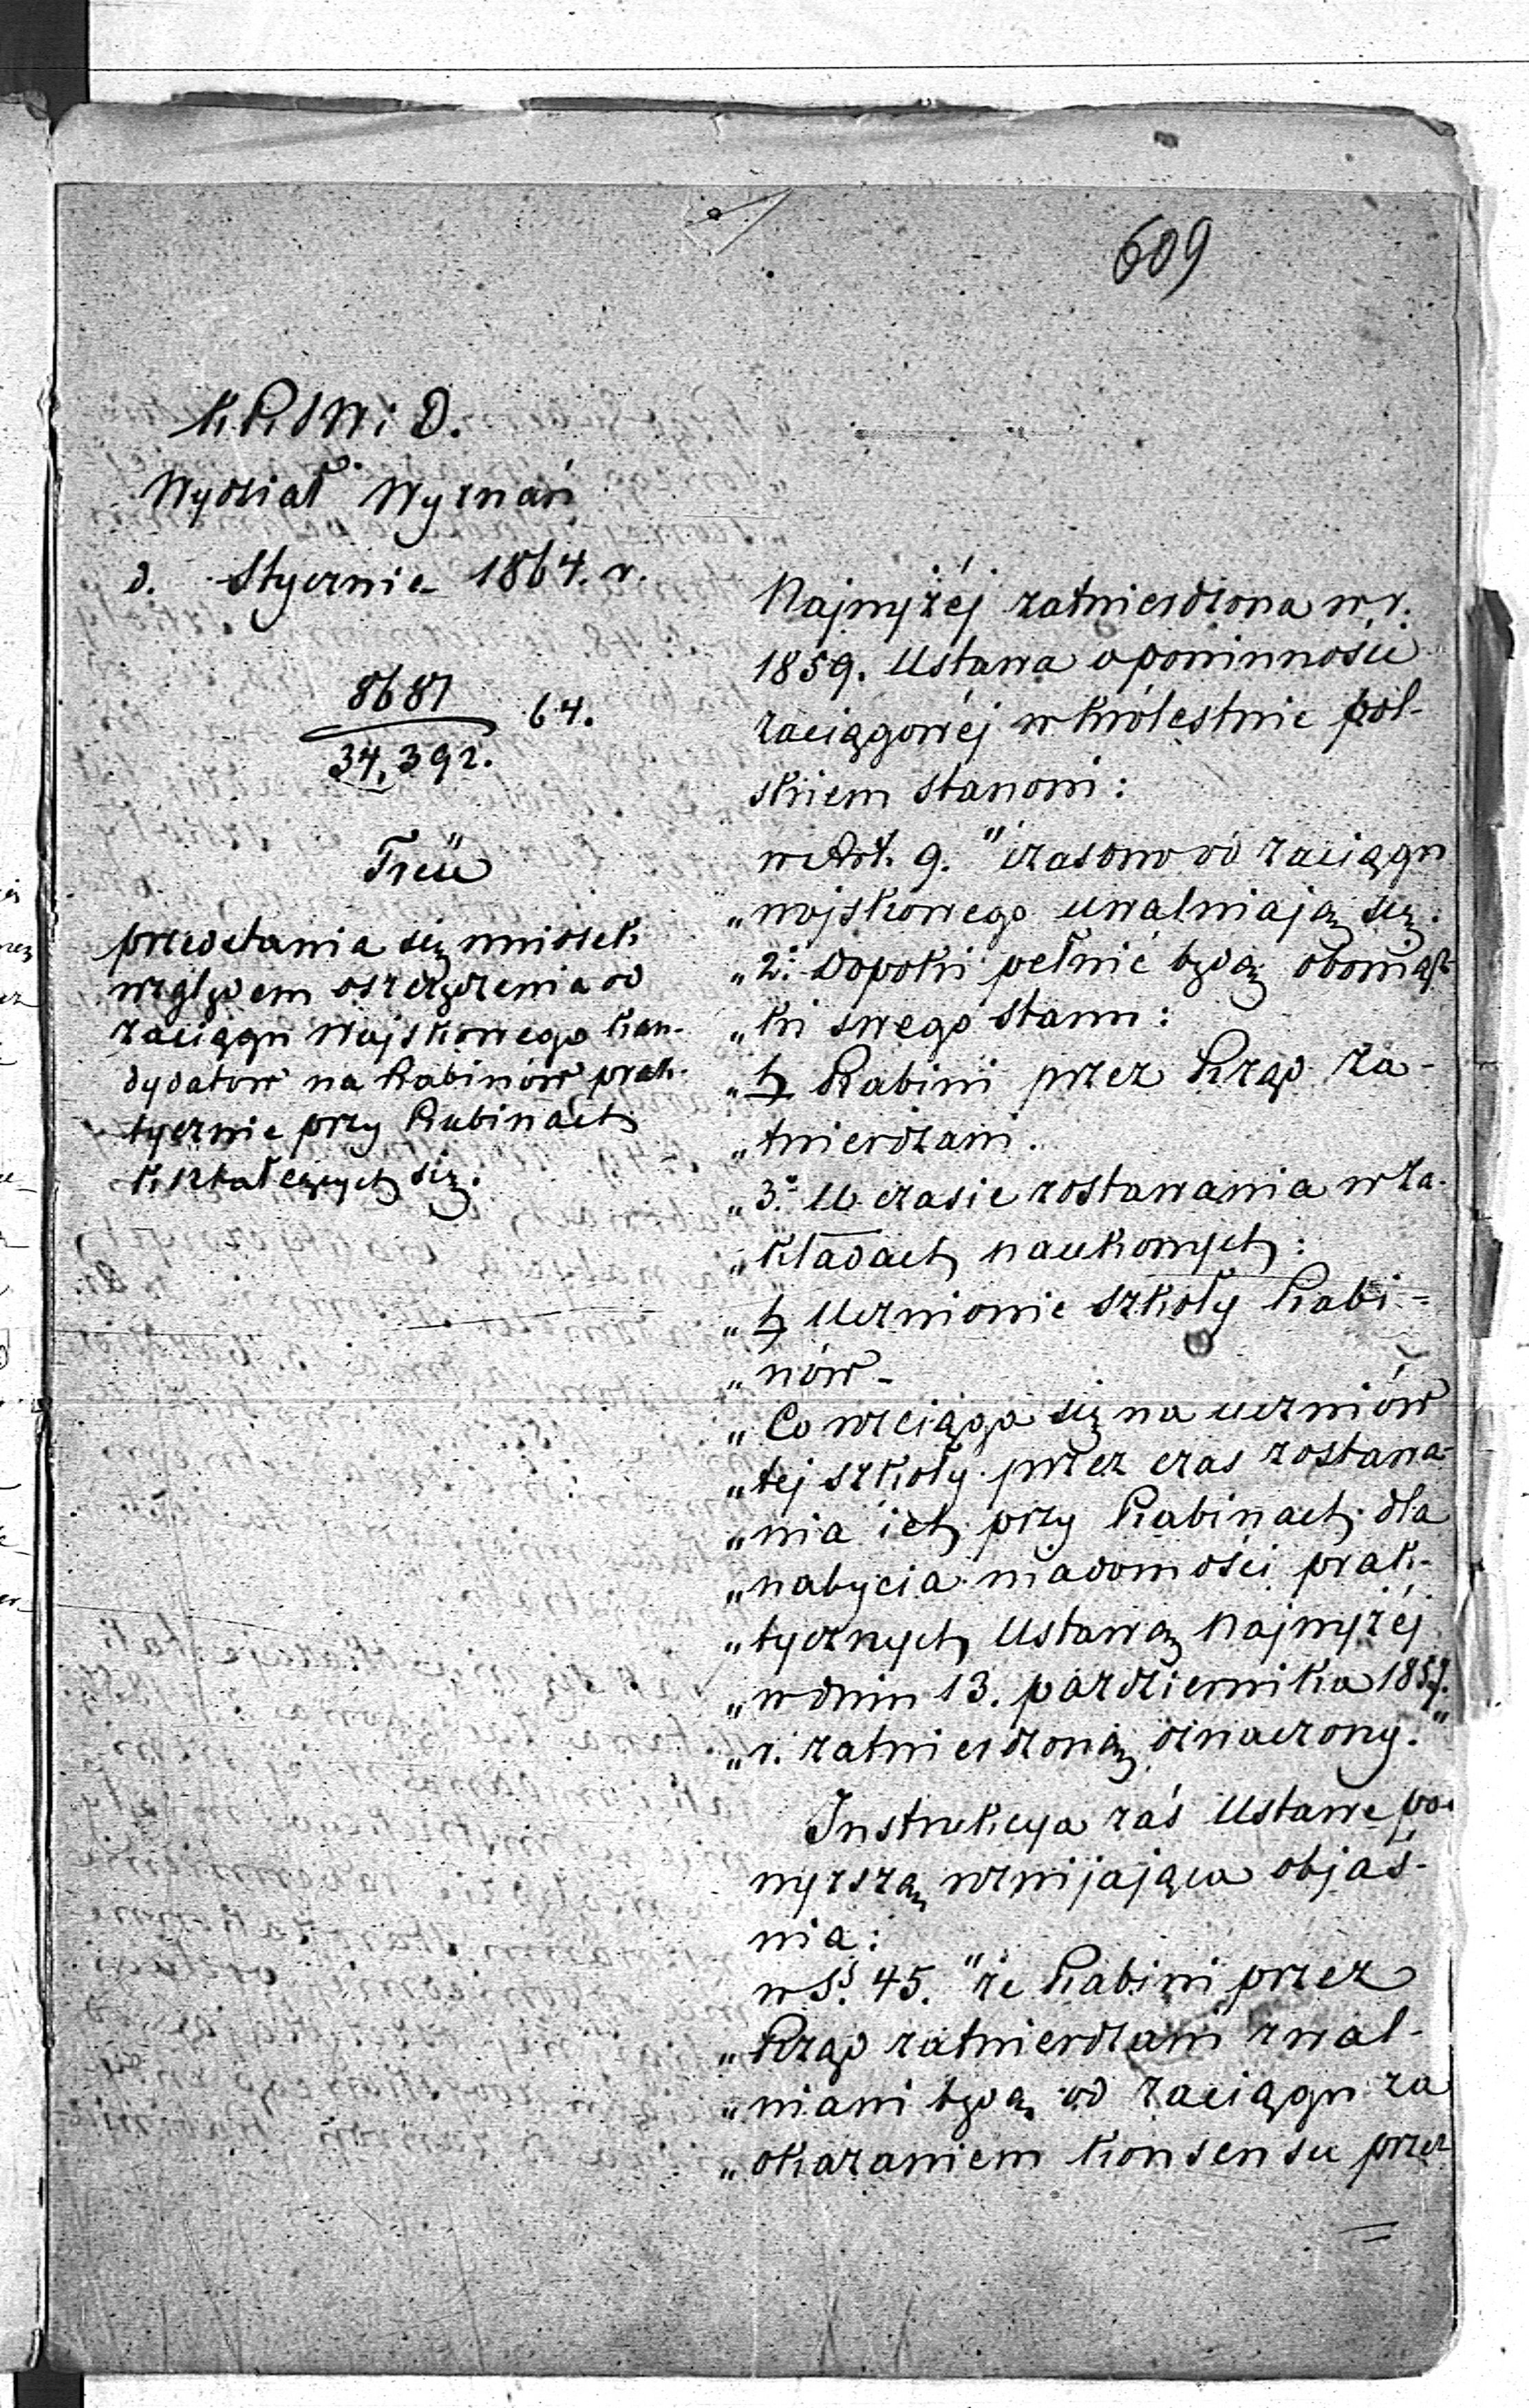 609
KRSW i D.
Wydział Wyznań
d. Stycznia 1864. r.
8687
34,392. 64.
Treść
przedstawia się wniosek
względem oszczędzenia od
zaciągu wojskowego kan-
dydatów na Rabinów prak-
tycznie przy Rabinach
kształcących się.
Najwyżéj zatwierdzona w r.
1859. Ustawa o powinności
zaciągowéj w Królestwie Pol-
skiem stanowi:
w Art. 9. "czasowo od zaciągu
„wojskowego uwalniają się:
„2. Dopóki pełnić będą obowiąz-
„ki swego stanu:
„h, Rabini przez Rząd za-
„twierdzani.
„3. W czasie zostawania w Za-
„kładach naukowych:
„h, Uczniowie szkoły Rabi-
„nów-
„Co rozciąga się na uczniów
„tej szkoły przez czas zostawa-
„nia ich przy Rabinach dla
„nabycia wiadomości prak-
„tycznych Ustawą Najwyżéj
„w dniu 13. października 1857.
„r. zatwierdzoną oznaczony."
Instrukcya zaś Ustawę po-
wyższą rozwijająca objaś-
nia:
w §. 45. "że Rabini przez
„Rząd zatwierdzani zwal-
„niani będą od zaciągu za
„okazaniem konsensu przez